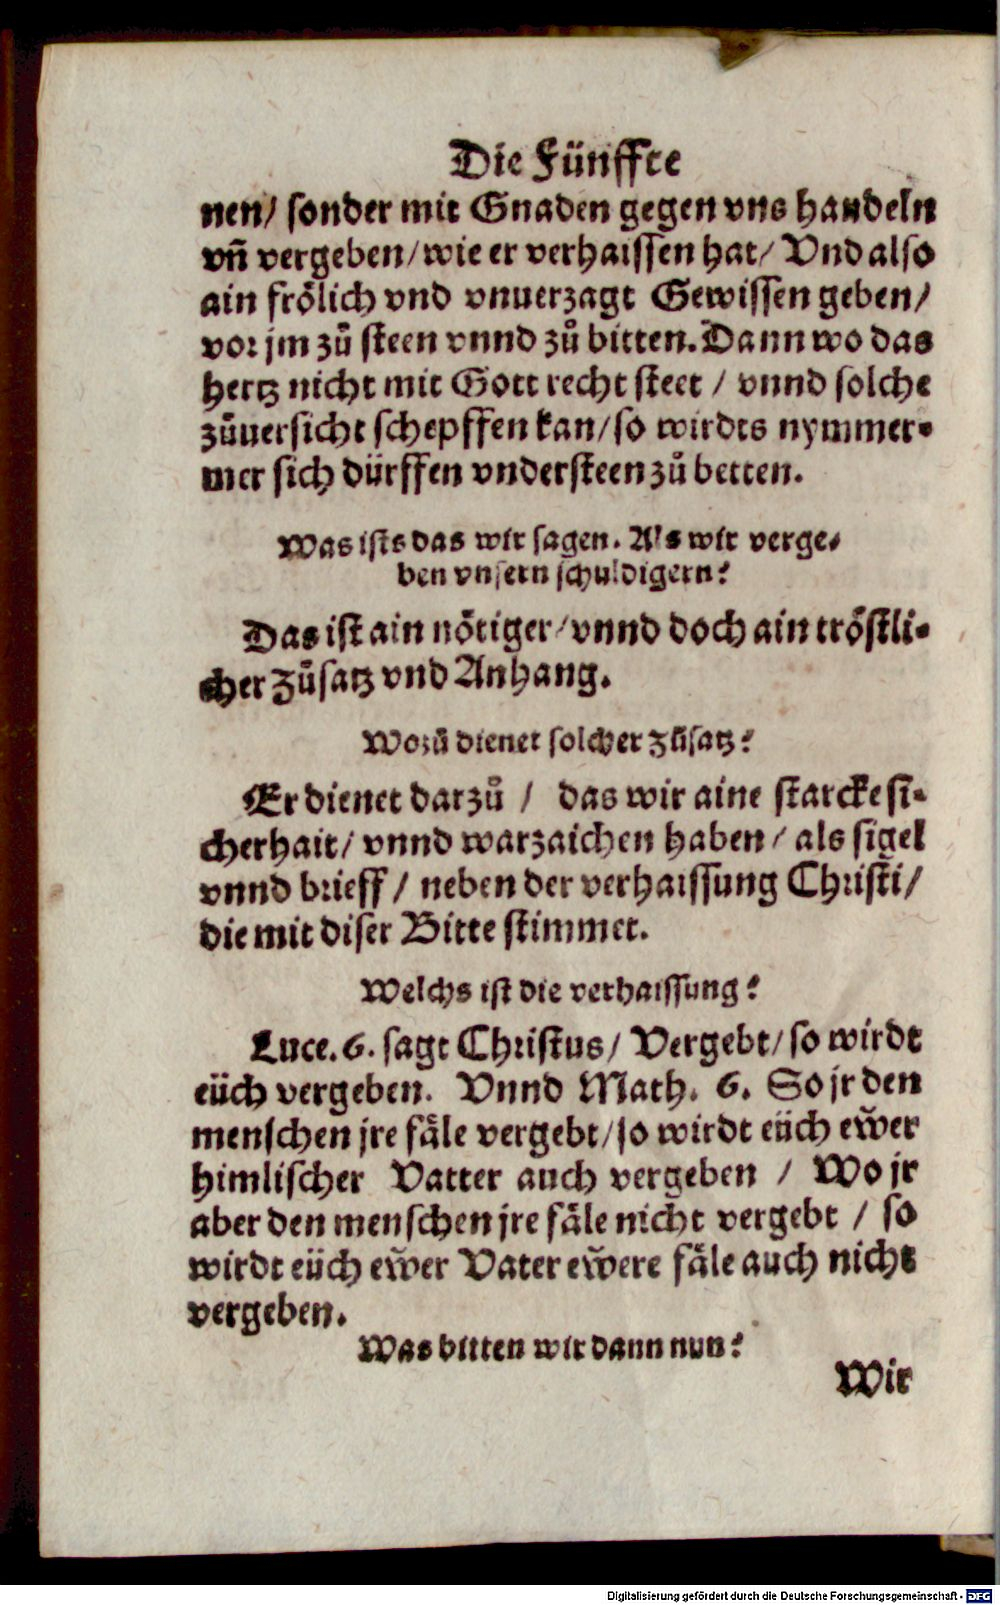 Die Fünffte
nen/ sonder mit Gnaden gegen vns handeln
vñ vergeben/ wie er verhaissen hat/ Vnd also
ain frölich vnd vnuerzagt Gewissen geben/
vor jm zů steen vnnd zů bitten. Dann wo das
hertz nicht mit Gott recht steet / vnnd solche
zůuersicht schepffen kan/ so wirdts nymmer-
mer sich dürffen vndersteen zů betten.
Was ists das wir sagen. Als wir verge-
ben vnsern schuldigern?
Das ist ain nötiger/ vnnd doch ain tröstli-
cher Zůsatz vnd Anhang.
Wozů dienet solcher Zůsatz?
Er dienet darzů / das wir aine starcke si-
cherhait/ vnnd warzaichen haben/ als sigel
vnnd brieff / neben der verhaissung Christi/
die mit diser Bitte stimmet.
Welchs ist die verhaissung?
Luce. 6. sagt Christus/ Vergebt/ so wirdt
eüch vergeben. Vnnd Math. 6. So jr den
menschen jre fäle vergebt/ so wirdt eüch ew̌er
himlischer Vatter auch vergeben / Wo jr
aber den menschen jre fäle nicht vergebt / so
wirdt eüch ew̌er Vater ew̌ere fäle auch nicht
vergeben.
Was bitten wir dann nun?
Wir
Digitalisierung gefördert durch die Deutsche Forschungsgemeinschaft - DFG